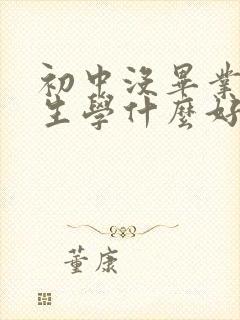 初中没畢業
生學什麼好
董康